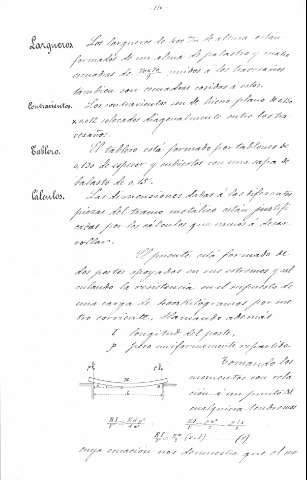 Largueros. Los largueros de 400 m/m de altura están
formados de un alma de palastro y cuatro
escuadras de 70 x 70 unidos á los travesaños
tambien con escuadras cosidas á estos.
Contravientos. Los contravientos son de hierro plano de
x 0,012 colocados diagonalmente entre los tra
vesaños.
Tablero. El tablero está formado por tablones de
0,130 de espesor y cubiertos con una capa de
balasto de 0,15.
Cálculos. Las dimensiones dadas á las diferentes
piezas del tramo metálico están justifi
cadas por los cálculos que vamos á desar
rollar.
El puente está formado de
dos partes apoyadas en sus extremos y cal
culando la resistencia en el supuesto de
una carga de kilógramos por me
tro corriente. Llamando además
l longitud del
p peso uniformemente repartido.
Tomando los
momentos con rela
ción á un punto M
cualquiera tendremos
(1)
cuya ecuacion nos demuestra que el mo